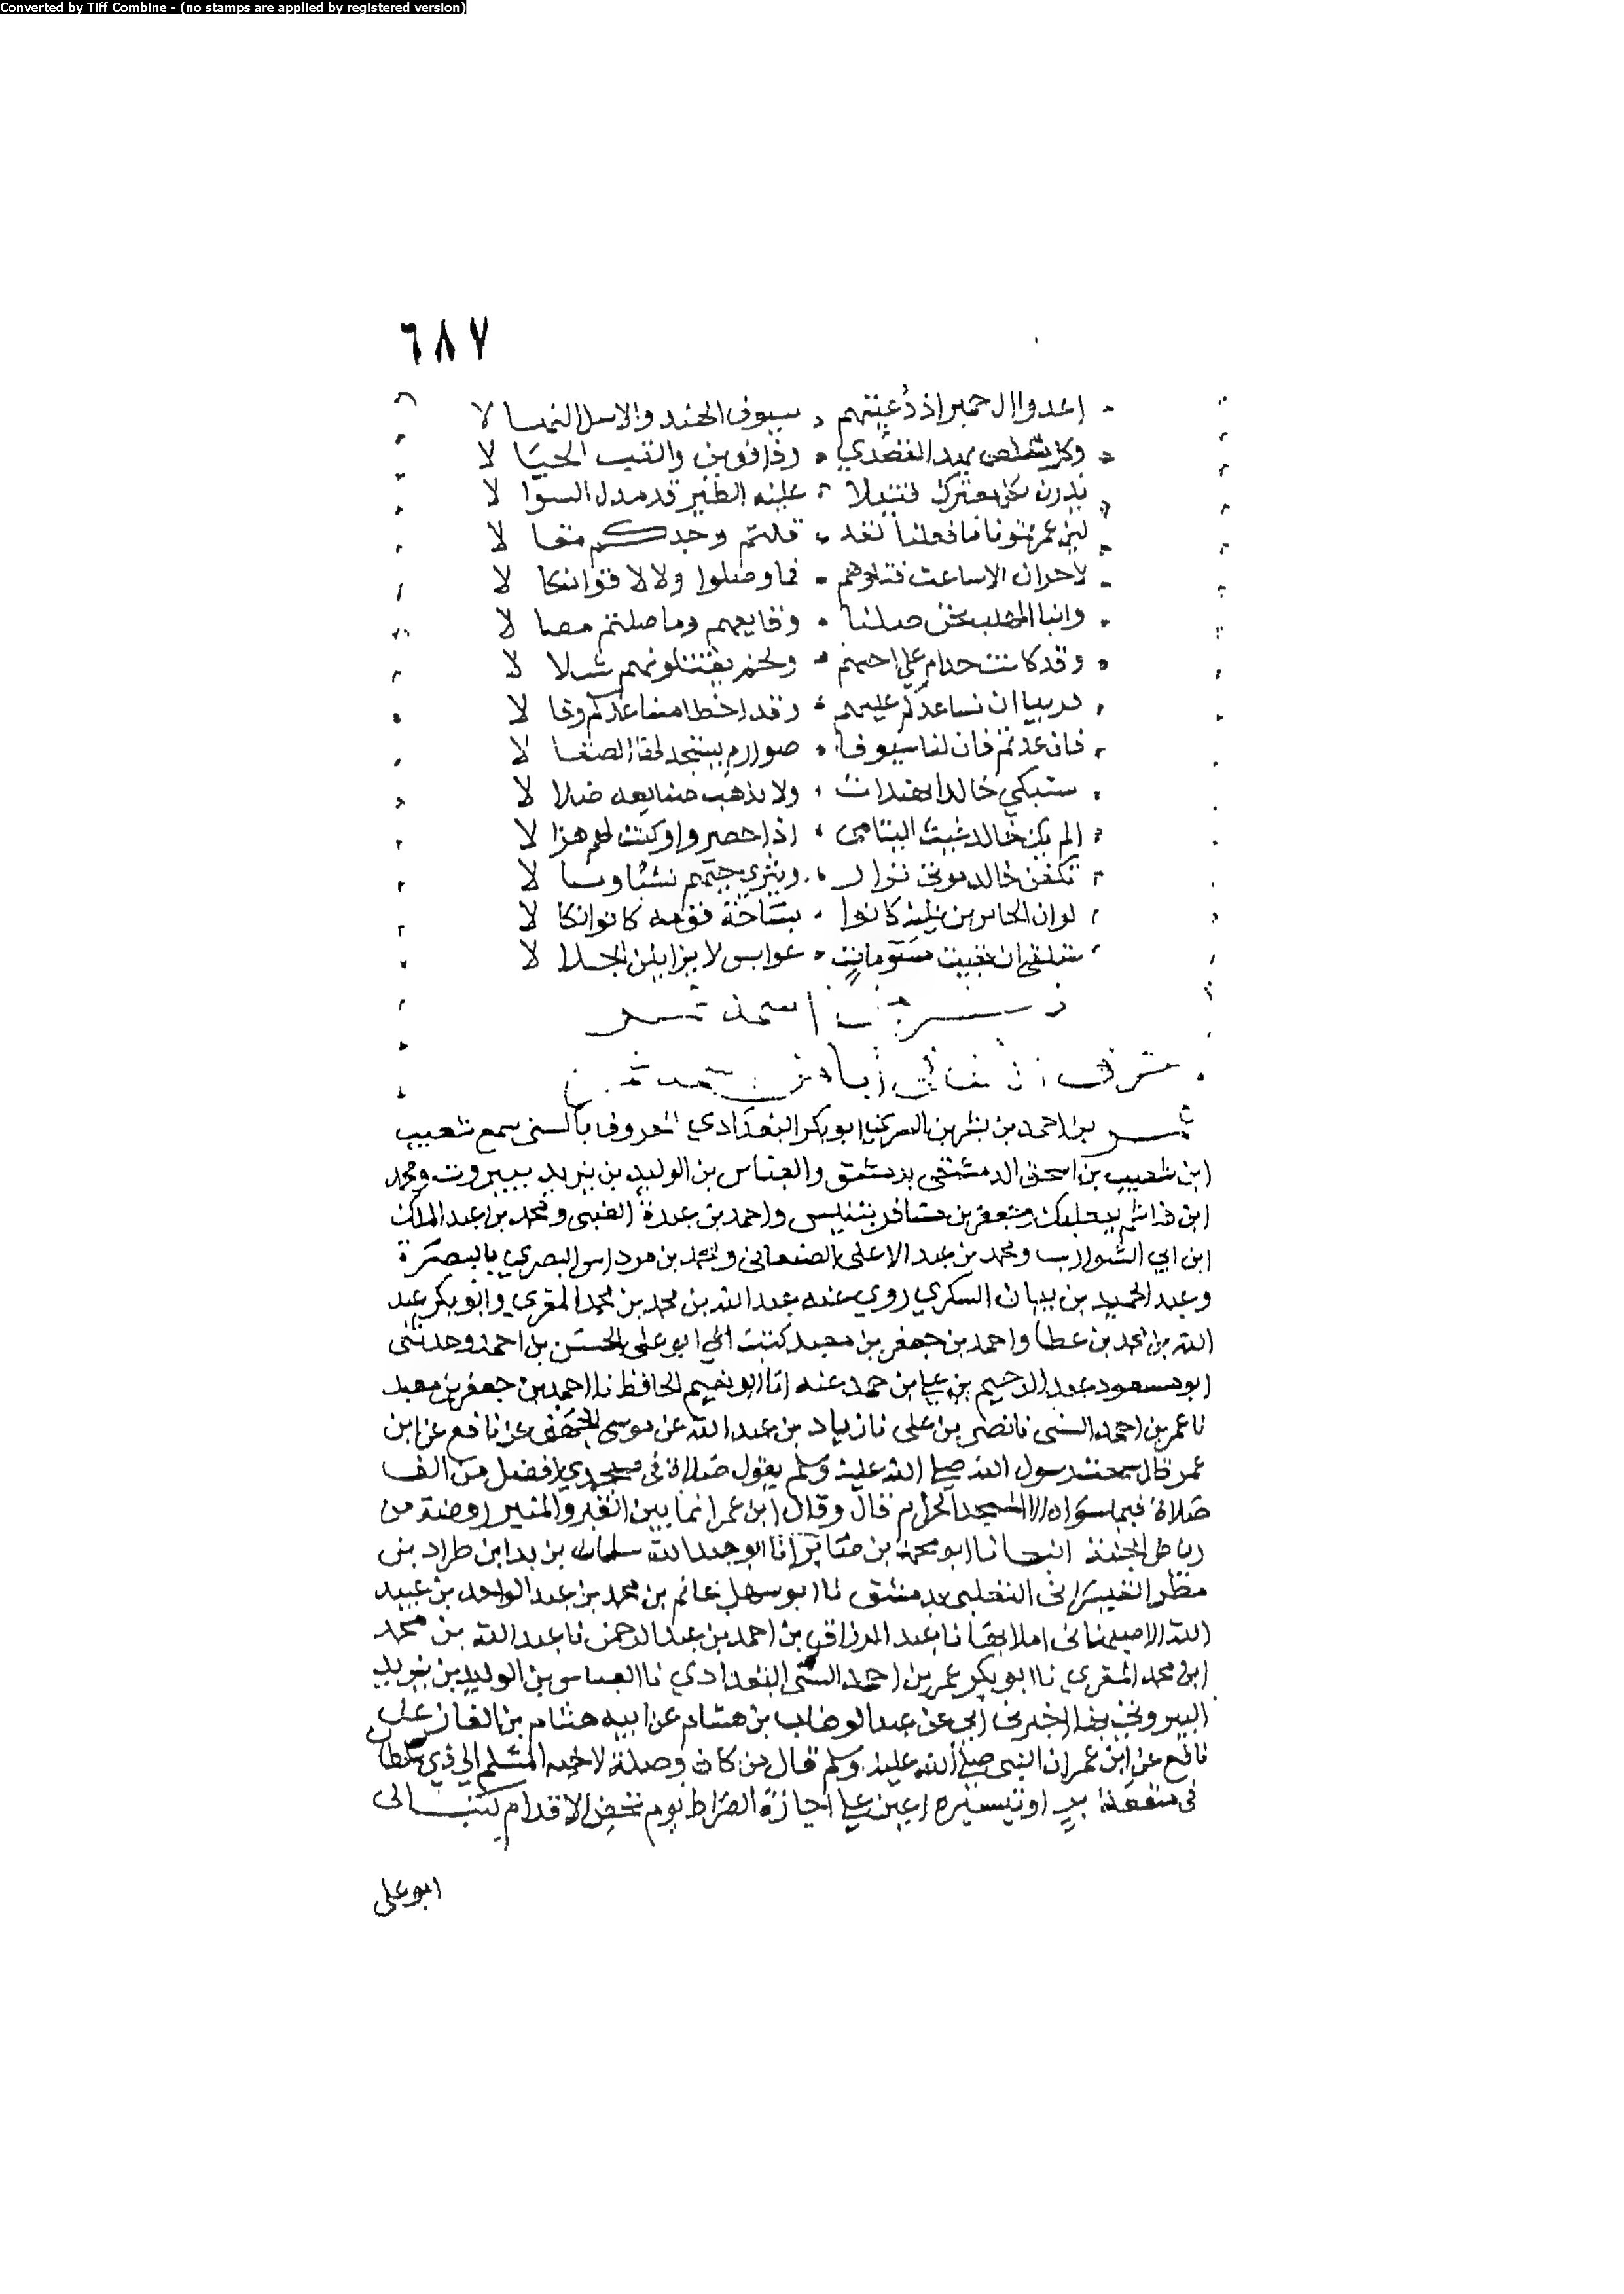 Converted by Tiff Combine - (no stamps are applied by registered version)
٦٨٧
اعدوا ال حمير اذ دعيتهم سيوف الهند والاسل النها لا
وكل
بكل معترك قتيلا عليه الطير قد مدل السوا لا
لين عمرتمونا ما فعلنا لقد قلتم وجدكم مقا لا
لاخوان الاساعث قتلوهم فما وصلوا ولا لاقوا نكا لا
وابنا المهلب نحن صلنا وقايعهم وما صلتم مصا لا
وقد كانت جذام على اخيهم ولخم يقتلونهم شلا لا
هربنا ان نساعدكم عليهم وقد اخطا مساعدكم وفا لا
فان عدتم فان لنا سيوفا صوارم نستجد لها الصقا لا
ستبكي خالدا مهندات ولا يذهب صنايعه ضلا لا
الم يكن خالد غيث اليتامى اذا حضروا وكنت لهم هزا لا
تكفن خالد موتى نزار ويثري حيهم نشبا وما لا
لو ان الجائرين عليه كانوا بساحة قومه كانوا نكا لا
ستلقى ان بقيت مسومات عوابس لا يزايلن الجلا لا
عمر بن احمد بن بشر بن السري ابو بكر البغدادي المعروف بالسني سمع شعيب
ابن شعيب بن اسحق الدمشقي بدمشق والعباس بن الوليد بن مزيد ببيروت ومحمد
ابن هاشم ببعلبك وجعفر بن مسافر بتنيس واحمد بن عبدة الضبي ومحمد بن عبد الملك
ابن ابي الشوارب ومحمد بن عبد الاعلى الصنعاني ومحمد بن مرداس البصري بالبصرة
وعبد الحميد بن بيان السكري روي عنه عبد الله بن محمد بن محمد المقري وابو بكر عبد
الله بن محمد بن عطا واحمد بن جعفر بن معبد كتب الي ابو علي الحسن بن احمد وحدثني
ابو مسعود عبد الرحيم بن علي بن حمد عنه انا ابو نعيم الحافظ نا احمد بن جعفر بن معبد
نا عمر بن احمد السني نا نصر بن علي نا زياد بن عبد الله عن موسى الجهني عن نافع عن ابن
عمر قال سمعت رسول الله صلى الله عليه وسلم يقول صلاة في مسجدي افضل من الف
صلاة فيما سواه الا المسجد الحرام قال وقال ابن عمر انما بين القبر والمنبر روضة من
رياض الجنة انبانا ابو محمد بن صابر انا ابو عبد الله سلمان بن بدا بن طراد بن
مظر التغلبي بدمشق نا ابو سهل غانم بن محمد بن عبد الواحد بن عبيد
الله الاصبهاني املا بها نا عبد الرزاق بن احمد بن عبد الرحمن نا عبد الله بن محمد
ابن محمد المقري نا ابو بكر عمر بن احمد السني البغدادي نا العباس بن الوليد بن مزيد
البيروتي بها اخبرني ابي عن عبد الوهاب بن هشام عن ابيه هشام بن الغاز عن
نافع عن ابن عمر ان النبي صلى الله عليه وسلم قال من كان وصلة لاخيه المسلم الي ذي سلطان
في منفعة بر او تيسير اعين على اجازة الصراط يوم دحض الاقدام كتب الى
ابو علي